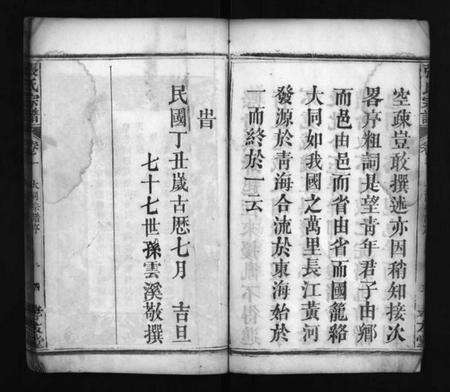 空疎豈敢撰述亦因稍知接次
畧序粗詞是望青年君子由鄉
而邑由邑而省由省而國龍絡
大同如我國之萬里長江黃河
發源於青海合流於東海始於
一而終於一云
旹
民國丁丑歲古歷七月　吉旦
七十七世孫雲溪敬撰
氏宗譜